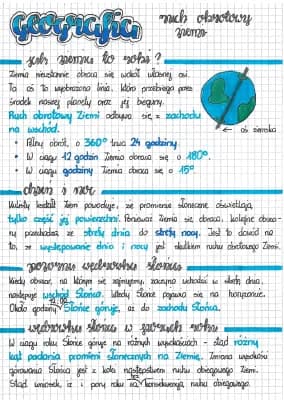 Geografia
ruch obrotowy
ziemi
jak ziemia to robi?
Ziemia nieustannie obraca się wokół własnej osi.
To oś to wyobrażona linia, która przebiega przez
środek naszej planety oraz jej bieguny.
Ruch obrotowy Ziemi odbywa się z zachodu
na wschód.
← oś ziemska
• Pełny obrót, o 360° trwa 24 godziny
• W ciągu 12 godzin Ziemia obraca się o 180°.
• W ciągu godziny Ziemia obraca się o 15°.
dzień i noc
Kulisty kształt Ziemi powoduje, że promienie słoneczne oświetlają
tylko część jej powierzchni. Ponieważ Ziemia się obraca, kolejne obsza-
ry przechodzą ze strefy dnia do strefy nocy. Jest to dowód na
to, że występowanie dnia i nocy jest skutkiem ruchu obrotowego Ziemi.
pozorna wędrówka słońca
Kiedy obszar, na którym się zajmujemy, zaczyna wchodzić w strefę dnia,
następuje wschód Słońca. Wtedy Słońce pojawia się na horyzoncie.
Około godziny Słońce góruje, aż do zachodu Słońca.
wędrówka słońca w różnych roku
W ciągu roku Słońce góruje na różnych wysokościach - stąd różny
kąt padania promieni słonecznych na Ziemię. Zmiana wysokości
górowania Słońca jest z kolei następstwem ruchu obiegowego Ziemi.
Stąd wniosek, iż i pory roku są konsekwencją ruchu obiegowego.